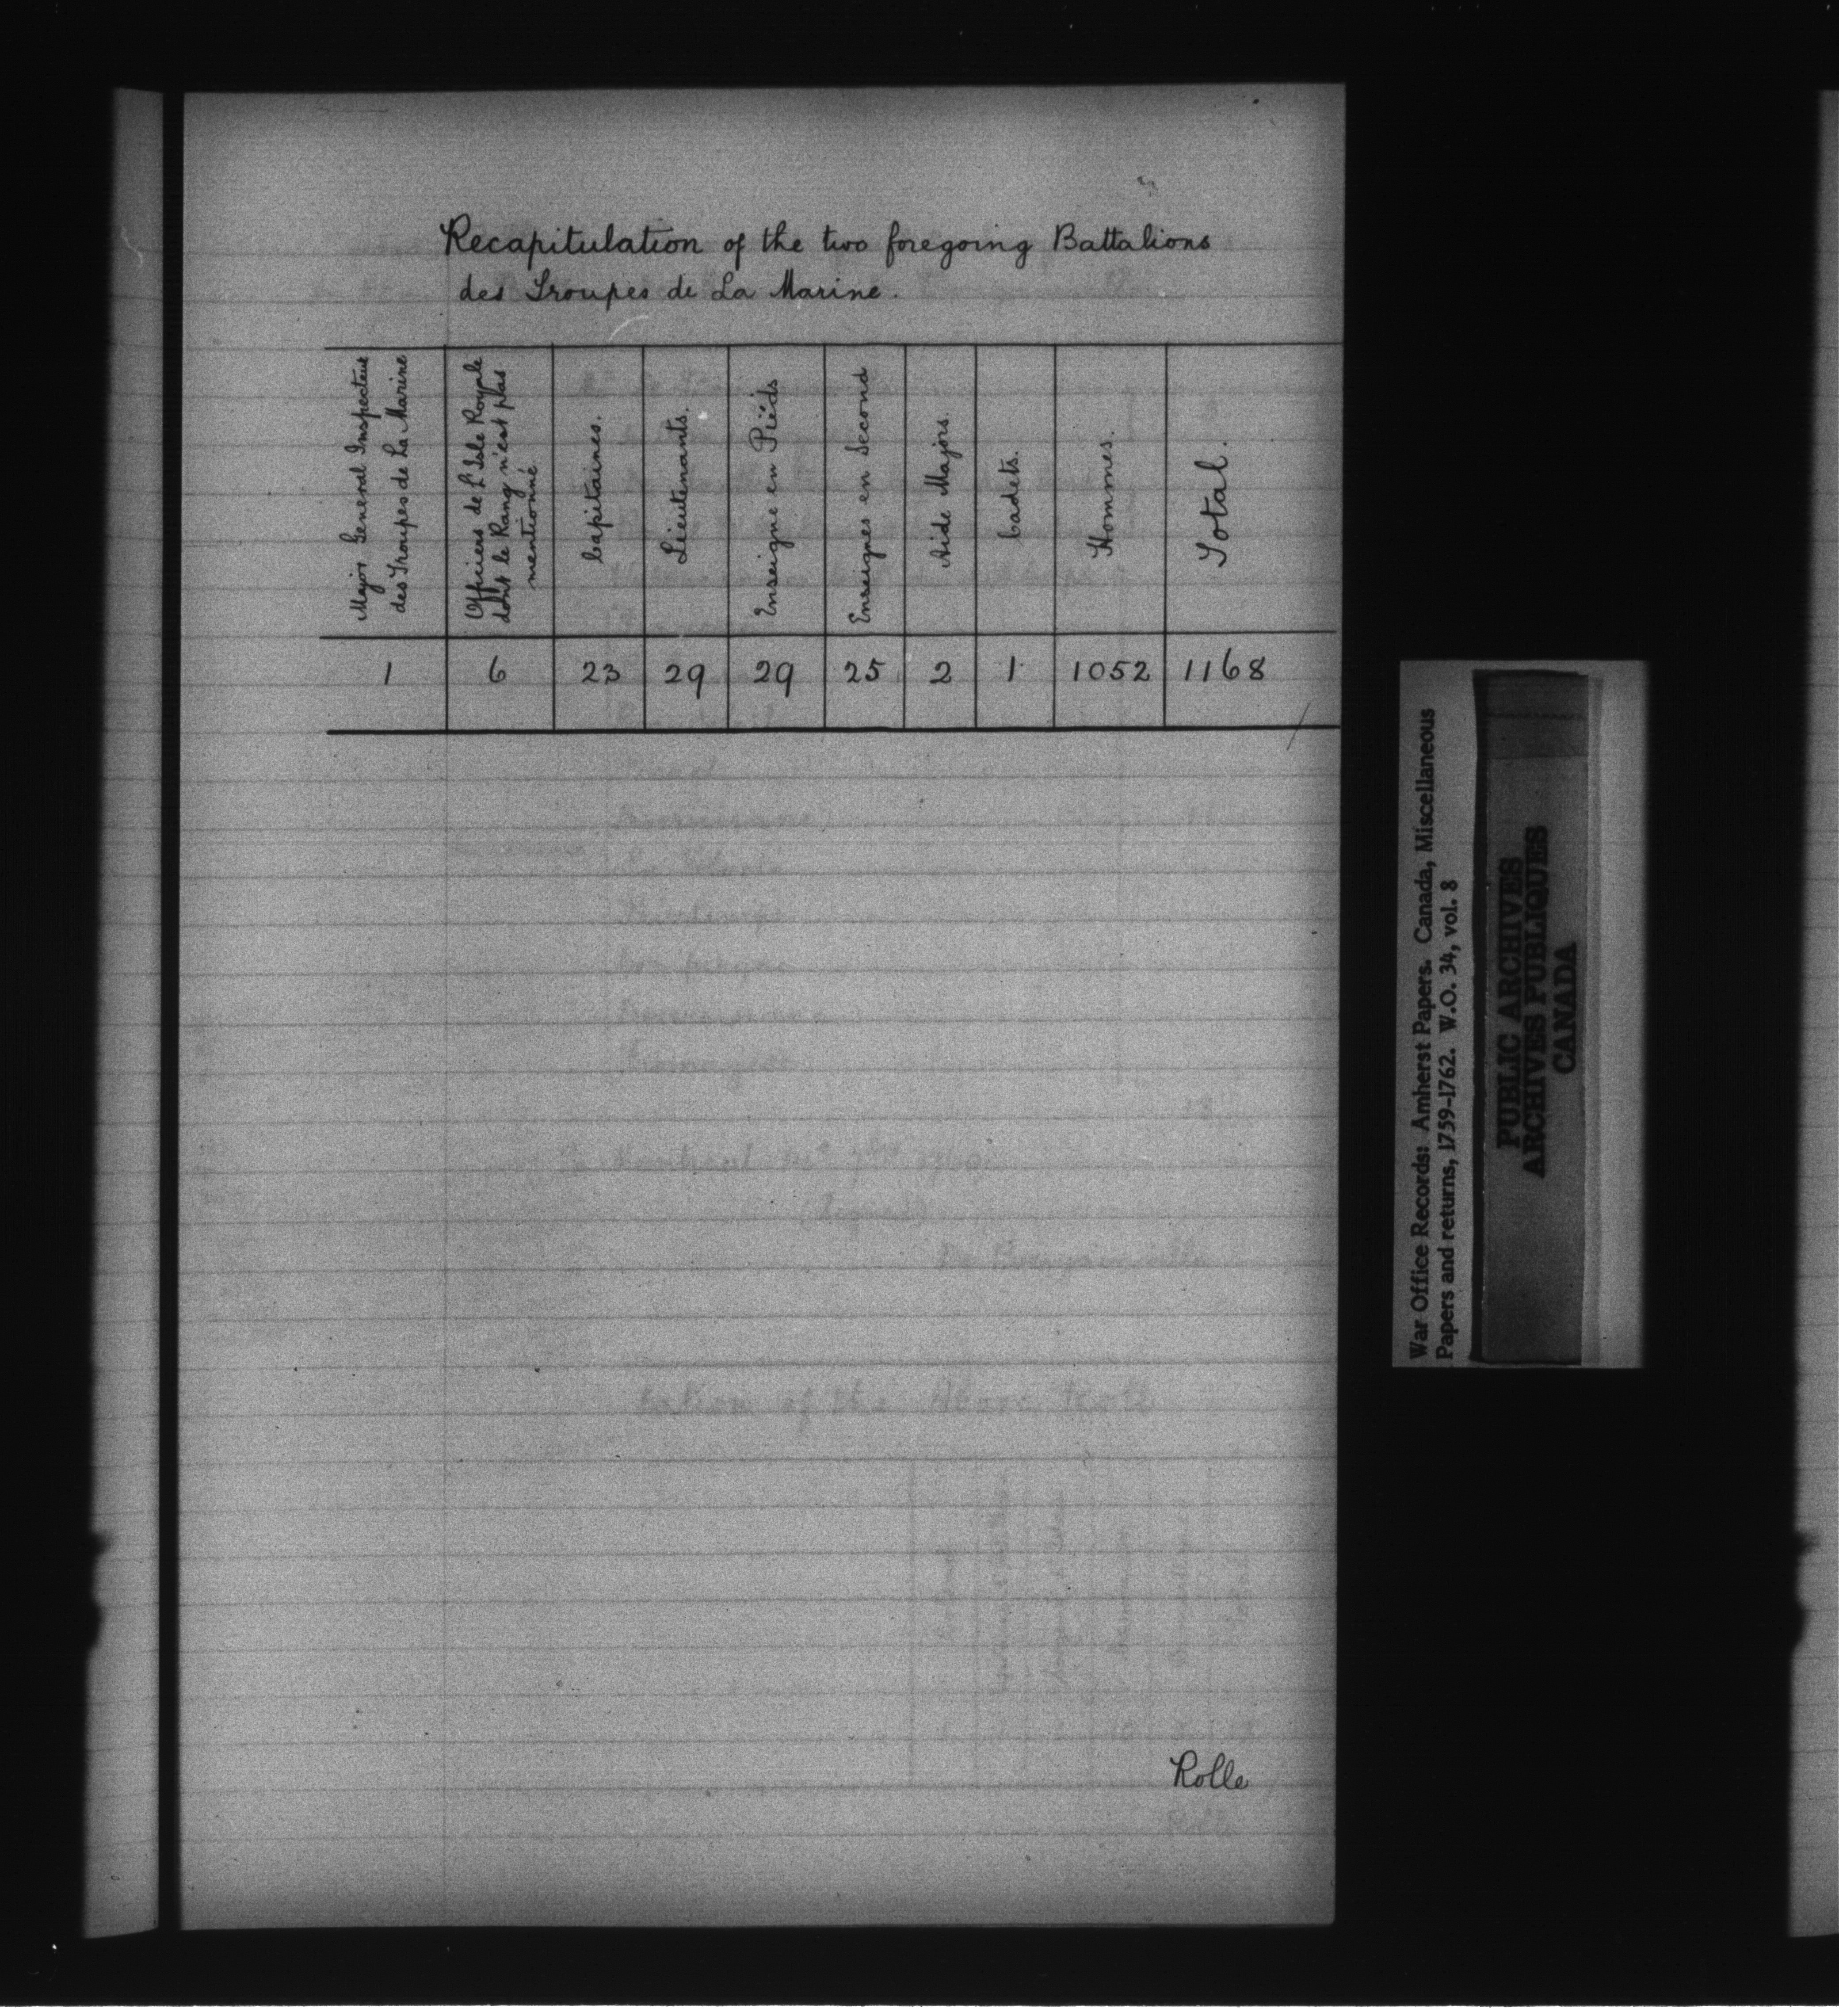 Recapitulation of the two foregoing Battalions
des Troupes de La Marine.
Major General Inspecteur
des Troupes de La Marine
Officiers de L'Isle Royale
dont le Rang n'est pas
mentionné
Capitaines.
Lieutenants.
Enseigne en Piéds
Enseignes en Second
Aide Majors.
Cadets.
Hommes.
Total.
1 6 23 29 29 25 2 1 1052 1168
Rolle
War Office Records: Amherst Papers. Canada, Miscellaneous
Papers and returns, 1759-1762. W.O. 34, vol. 8
PUBLIC ARCHIVES
ARCHIVES PUBLIQUES
CANADA